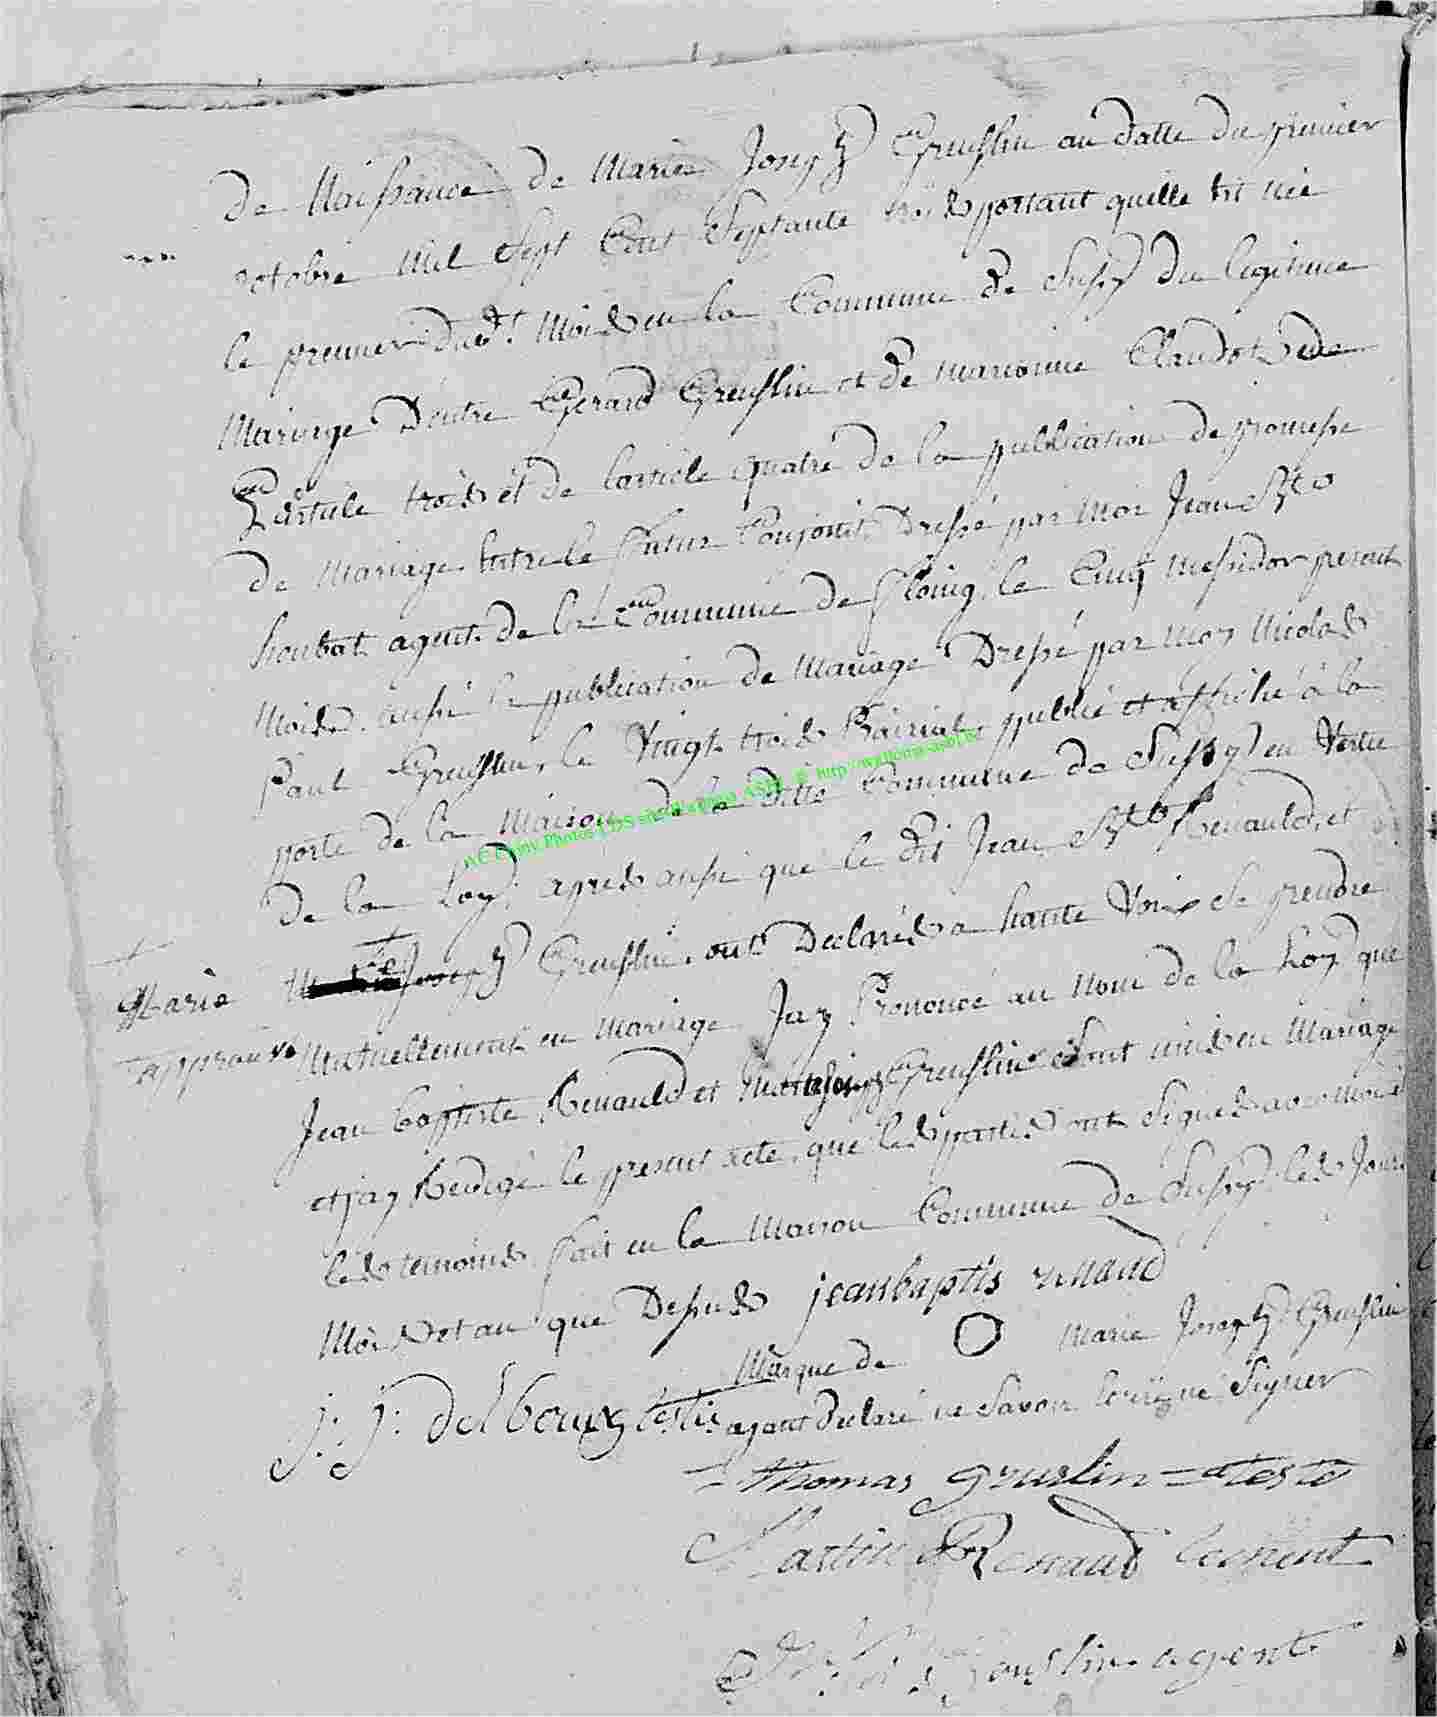 de Naissance de Marie Joseph Greuslin au datte du premier
octobre Mil Sept Cent Septante trois portant quelle Est née
le premier dud.t Mois en la Commune de Sussy du legitime
Mariage Dentre Gerard Greuslin et de marionne Claudot de
Larticle trois et de larticle quatre de la publication de promesse
de Mariage Entre le futur Conjoint Dressé par moi Jean Bte
houbat agent de la Commune de floing le Cinq Messidor present
Mois aussi la publication de Mariage Dressé par Moy Nicolas
Paul Greuslin, le Vingt trois Prairial publié et affiché à la
porte de la Maison de la ditte Commune de Sussy en Vertu
AC Chiny Photos CDS site Williquima ASBL ©
de la Loy, apres aussi que le dit Jean Bte Renauld, et
Marie Joseph Greuslin ont Declarés a haute Voix Se prendre
approuvé Mutuellement en Mariage Jay Prononcé au Nom de la Loy que
Jean Baptiste Renauld et Marie Joseph Greuslin Sont unis en Mariage
et jay Redigé le present acte que les parties ont Signés avec moi et
les temoins fait en la Maison Commune de Sussy les Jour
Mois et an que Dessus jeanbaptis renaud
Marque de O Marie Joseph Greuslin
J: J: delboux testis ayant declaré ne Savoir Ecrire ne Signer
Thomas gruslin teste
Martin Renaud
agent